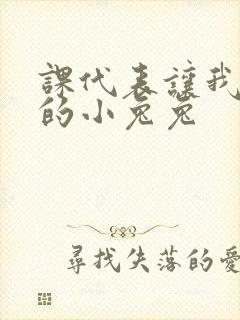 課代表讓我
的小兔兔
尋找失落的愛